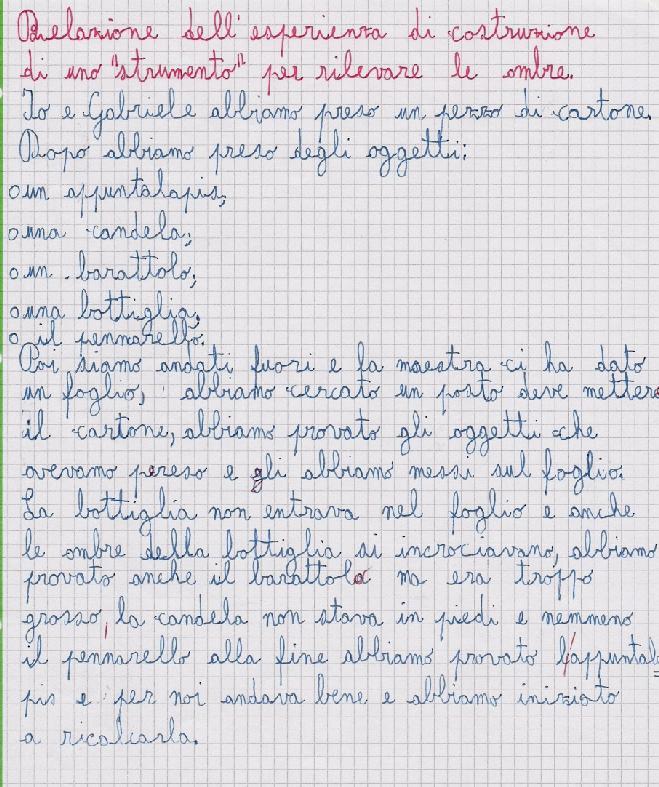 Relazione dell'esperienza di costruzione
di uno "strumento" per rilevare le ombre.
Io e Gabriele abbiamo preso un pezzo di cartone.
Dopo abbiamo preso degli oggetti:
o un appuntalapis;
o una candela;
o un barattolo;
o una bottiglia;
o il pennarello.
Poi siamo andati fuori e la maestra ci ha dato
un foglio, abbiamo cercato un posto deve mettere
il cartone, abbiamo provato gli oggetti che
avevamo pereso e gli abbiamo messi sul foglio.
La bottiglia non entrava nel foglio e anche
le ombre della bottiglia si incrociavano, abbiamo
provato anche il barattolo ma era troppo
grosso, la candela non stava in piedi e nemmeno
il pennarello alla fine abbiamo provato l'appuntala=
pis e per noi andava bene e abbiamo iniziato
a ricalcarla.